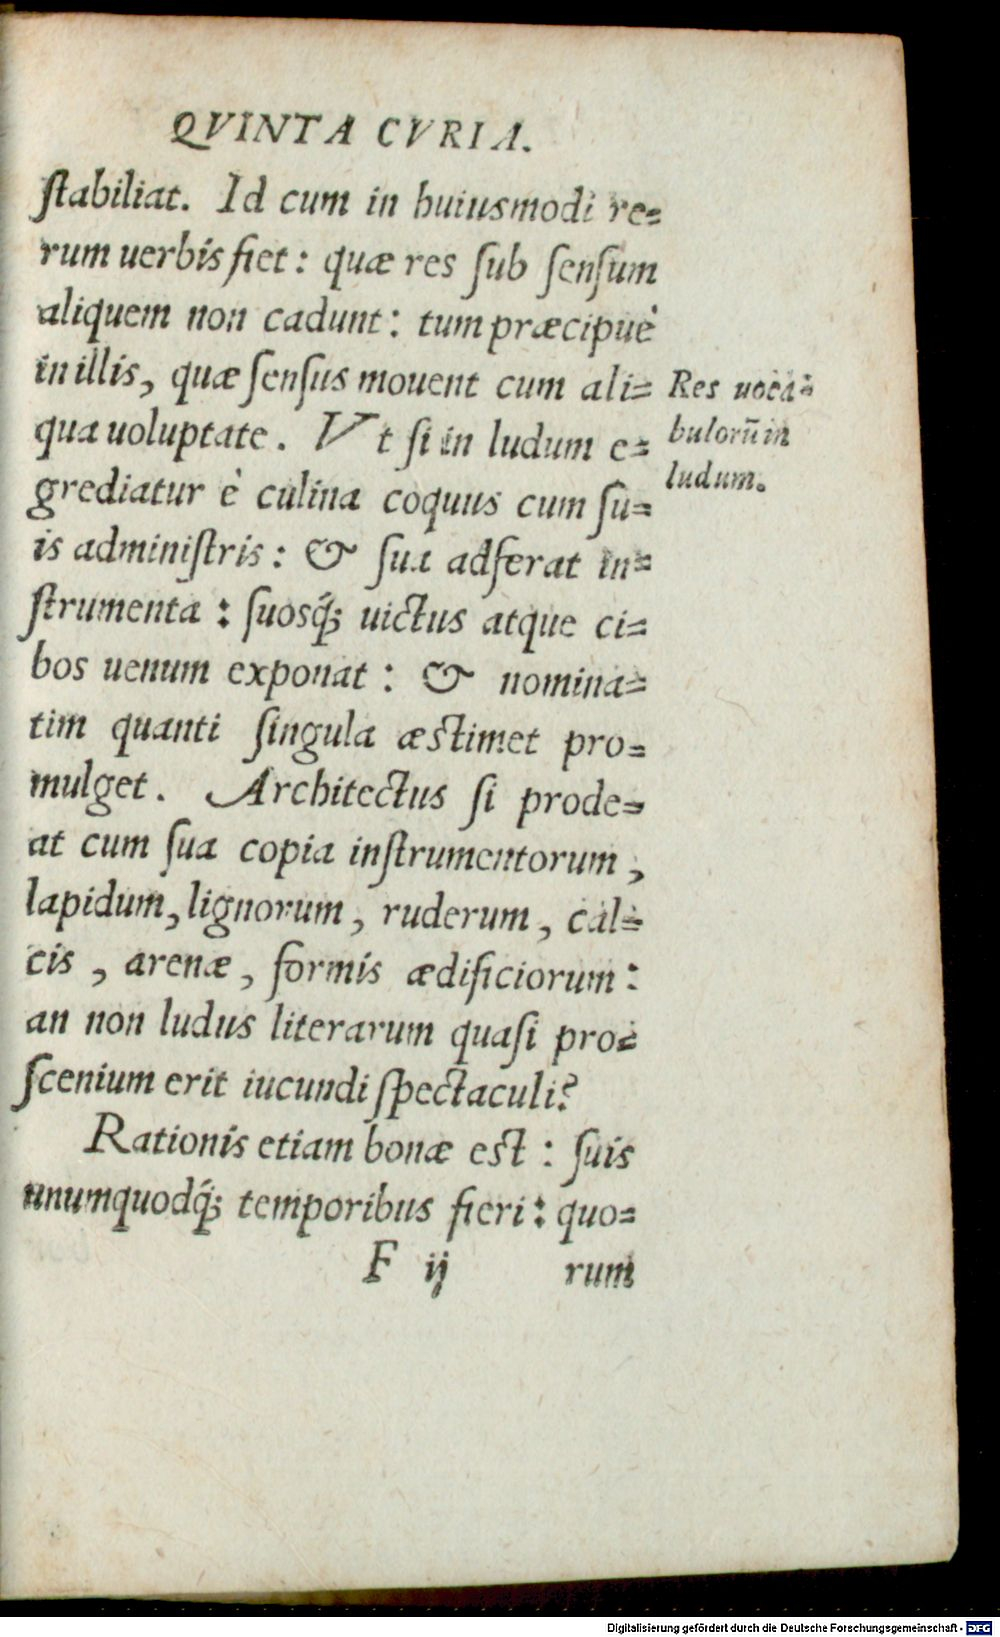 QVINTA CVRIA.
ſtabiliat. Id cum in huiusmodi re=
rum uerbis fiet: quæ res ſub ſenſum
aliquem non cadunt: tum præcipuè
in illis, quæ ſenſus mouent cum ali=
qua uoluptate. Vt ſi in ludum e=
grediatur è culina coquus cum ſu=
is adminiſtris: & ſua adferat in=
ſtrumenta: ſuosq́; uictus atque ci=
bos uenum exponat: & nomina=
tim quanti ſingula æstimet pro=
mulget. Architectus ſi prode=
at cum ſua copia inſtrumentorum,
lapidum, lignorum, ruderum, cal=
cis, arenæ, formis ædificiorum:
an non ludus literarum quaſi pro=
ſcenium erit iucundi ſpectaculi?
Rationis etiam bonæ est: ſuis
unumquodq́; temporibus fieri: quo=
F ij rum
Res uoca=
bulorū in
ludum.
Digitalisierung gefördert durch die Deutsche Forschungsgemeinschaft - DFG